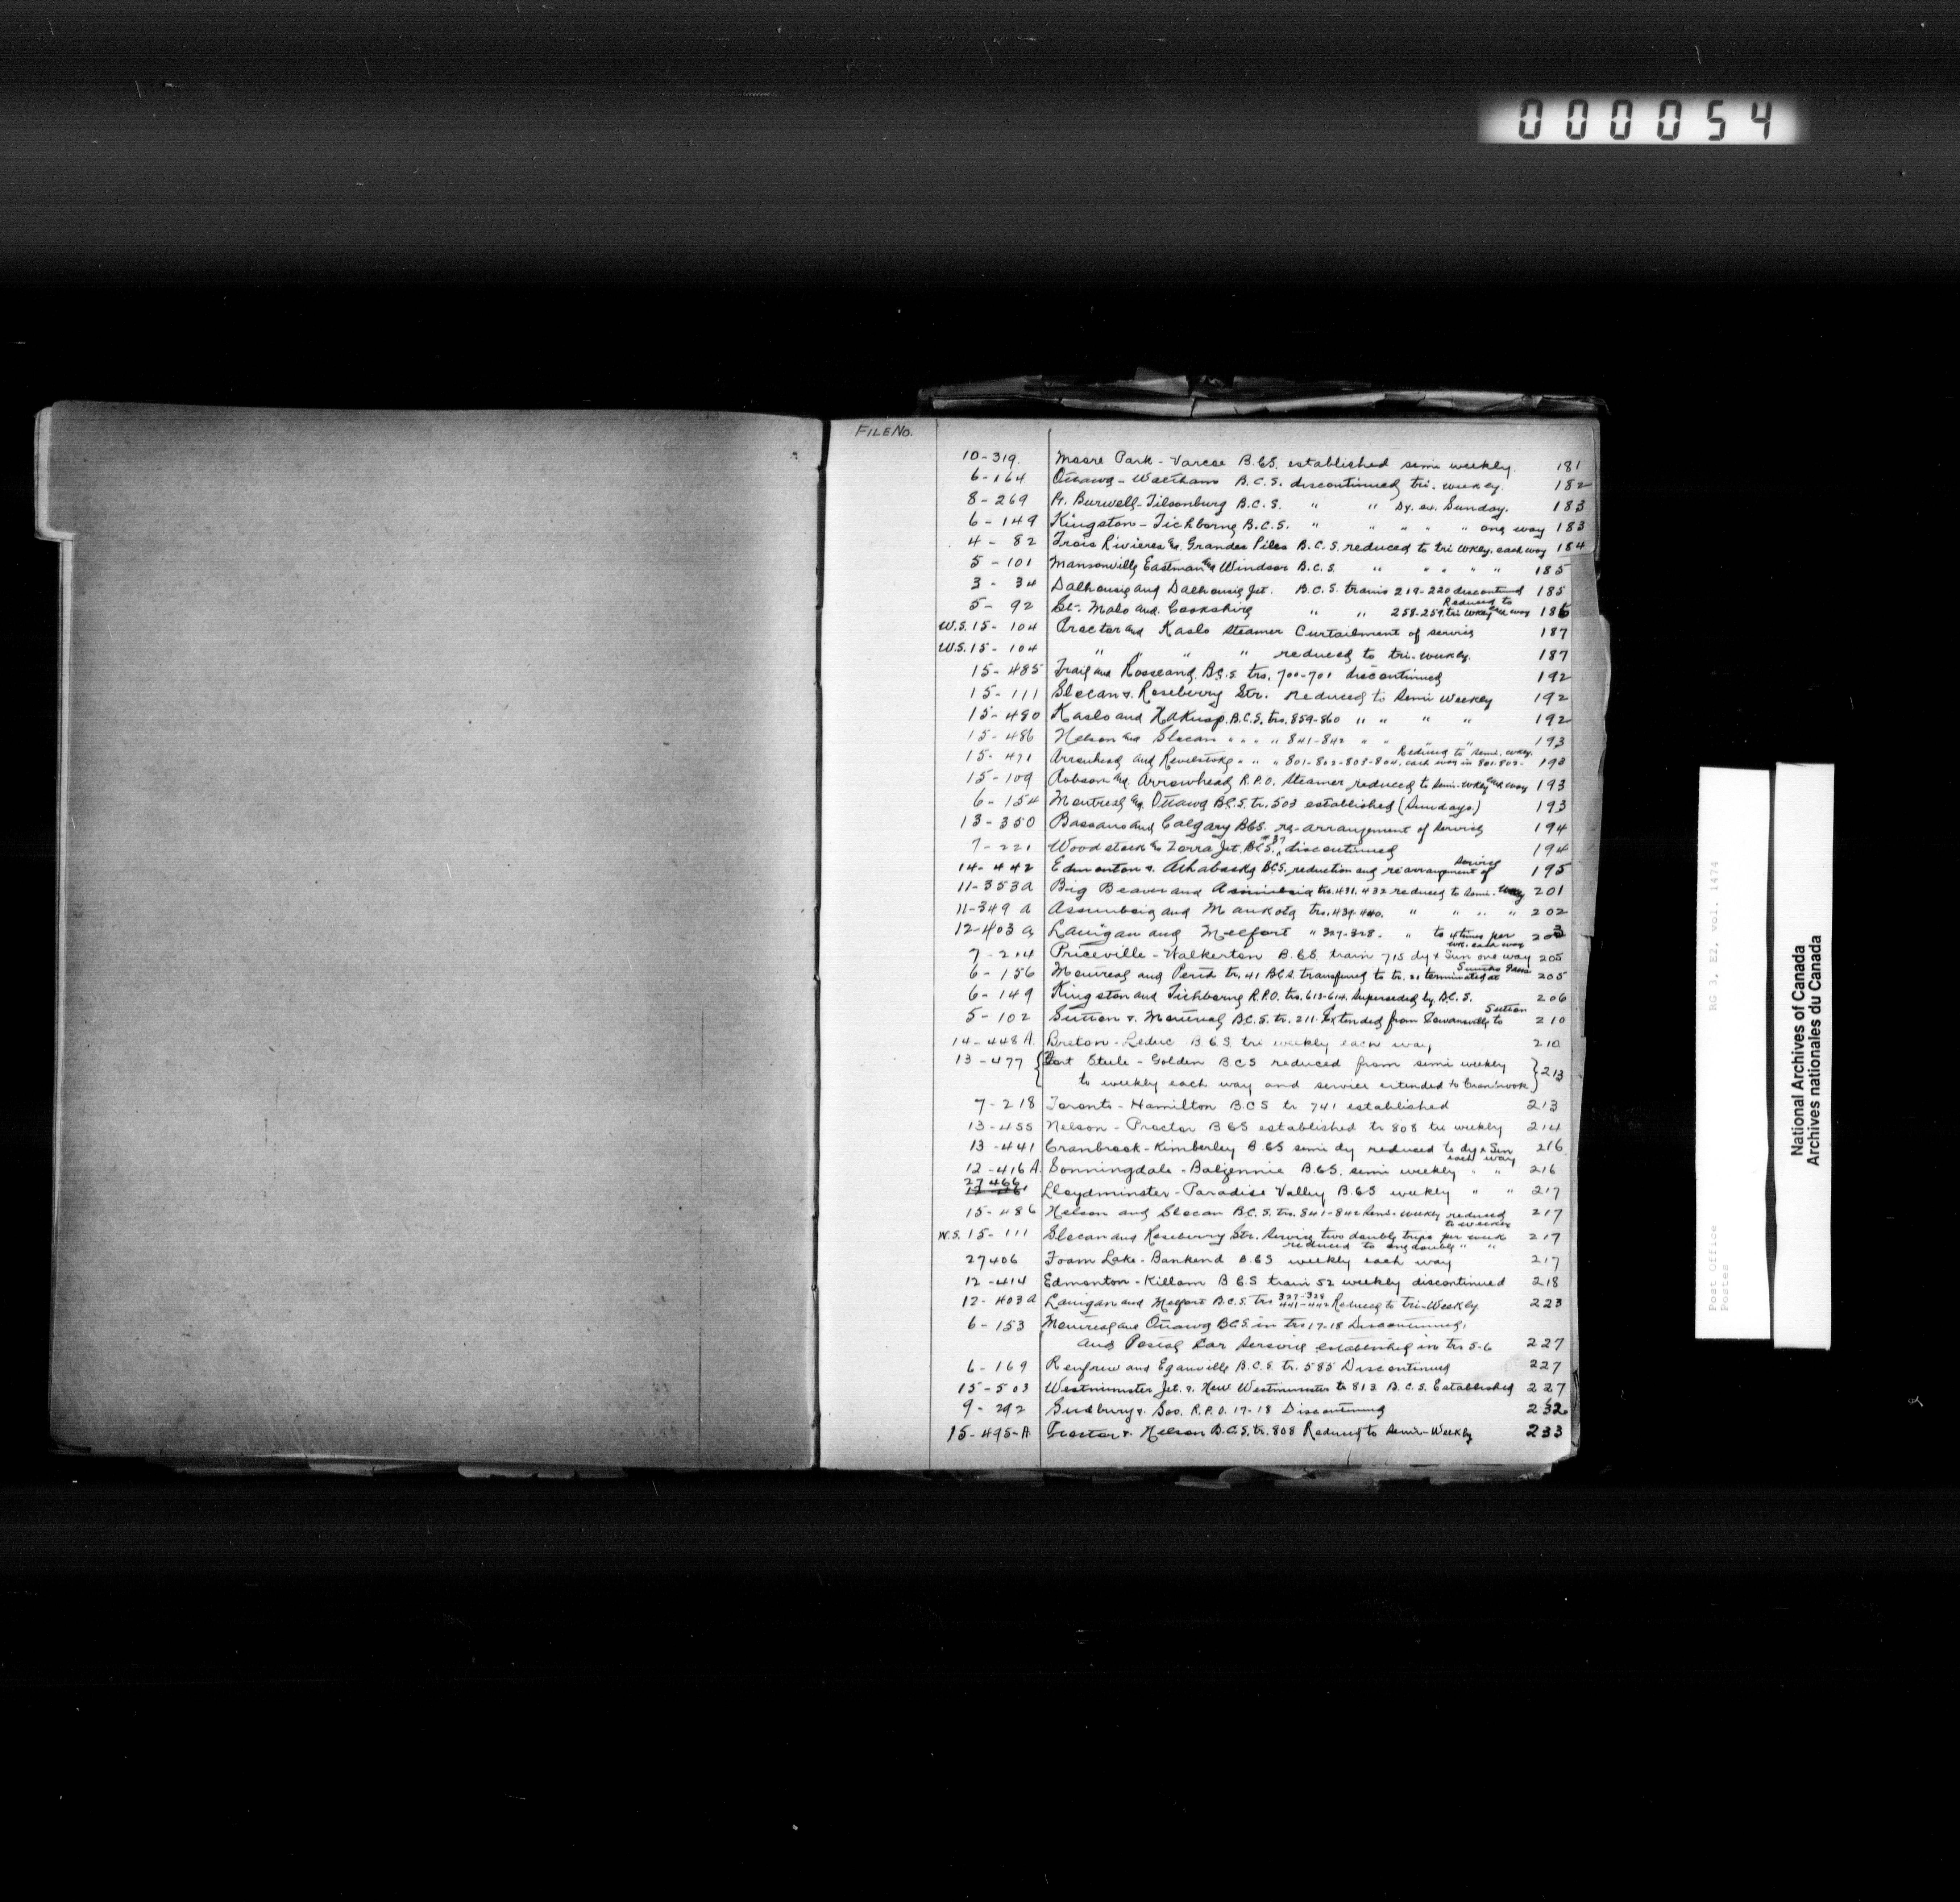 000054
FILE NO.
10-319. Moore Park - Varcoe B.C.S. established semi weekly. 181
6-164 Ottawa - Waltham B.C.S. discontinued tri. weekly. 182
8-269 Pt. Burwell - Tilsonburg B.C.S. " " Dy. ex. Sunday. 183
6-149 Kingston - Tichborne B.C.S. " " " " " one way 183
4-82 Trois Rivieres & Grandes Piles B.C.S. reduced to tri wkly. each way 184
5-101 Mansonville Eastman & Windsor B.C.S. " " " " " 185
3-34 Dalhousie and Dalhousie Jct. B.C.S. trains 219-220 discontinued 185
5-92 St. Malo and Cookshire " " 258-259 Reduced to tri wkly each way 186
W.S. 15-104 Proctor and Kaslo Steamer Curtailment of service 187
W.S. 15-104 " " " " reduced to tri-weekly. 187
15-485 Trail and Rossland B.C.S. trs. 700-701 discontinued 192
15-111 Slocan & Roseberry Str. reduced to Semi Weekly 192
15-480 Kaslo and Nakusp. B.C.S. trs. 859-860 " " " " 192
15-486 Nelson and Slocan " " " " 841-842 " " " " 193
15-471 Arrowhead and Revelstoke " " " 801-802-803-804. Reduced to semi. wkly. each way in 801-802- 193
15-109 Robson and Arrowhead R.P.O. Steamer reduced to semi-wkly each way 193
6-154 Montreal & Ottawa B.C.S. tr. 503 established (Sundays.) 193
13-350 Bassano and Calgary B.C.S. re-arrangement of service 194
7-221 Woodstock & Zorra Jct. B.C.S. 37 discontinued 194
14-442 Edmonton & Athabaska B.C.S. reduction and rearrangement of service 195
11-353a Big Beaver and Assiniboia trs. 431. 432 reduced to semi-wkly 201
11-349 a Assiniboia and Mankota trs. 439-440. " " " " 202
12-403 a Lanigan and Melfort " 327-328. " to 4 times per wk. each way 203
7-214 Priceville - Walkerton B.C.S. train 715 dy x Sun one way 205
6-156 Montreal and Perth tr. 41 B.C.S. transferred to tr. 21 terminated at Smiths Falls 205
6-149 Kingston and Tichborne R.P.O. trs. 613-614. Superseded by B.C.S. 206
5-102 Sutton & Montreal B.C.S. tr. 211. Extended from Cowansville to Sutton 210
14-448 A. Breton - Leduc B.C.S. tri weekly each way 210
13-477 Fort Steele - Golden BCS reduced from semi weekly
to weekly each way and service extended to Cranbrook 213
7-218 Toronto - Hamilton BCS tr 741 established 213
13-455 Nelson - Proctor BCS established tr 808 tri weekly 214
13-441 Cranbrook - Kimberley B.C.S semi dy reduced to dy x Sun each way 216
12-416 A. Sonningdale - Baljennie B.C.S. semi weekly " " 216
27466 Lloydminster - Paradise Valley B.C.S weekly " " 217
15-486 Nelson and Slocan B.C.S. trs. 841-842 Semi-weekly reduced to weekly 217
W.S. 15-111 Slocan and Roseberry Str. Service two double trips per week
reduced to one double " " 217
27406 Foam Lake - Bankend B.C.S weekly each way 217
12-414 Edmonton - Killam B.C.S train 52 weekly discontinued 218
12-403 a Lanigan and Melfort B.C.S. trs 327-328 441-442 Reduced to tri-weekly 223
6-153 Montreal and Ottawa B.C.S. in trs 17-18 Discontinued,
and Postal Car Service established in trs 5-6 227
6-169 Renfrew and Eganville B.C.S. tr. 585 Discontinued 227
15-503 Westminster Jct. & New Westminster tr 813 B.C.S. Established 227
9-292 Sudbury & Soo. R.P.O. 17-18 Discontinued 232
15-495-A. Proctor & Nelson B.C.S. tr. 808 Reduced to Semi-Weekly 233
Post Office RG 3, E2, vol. 1474
Postes
National Archives of Canada
Archives nationales du Canada